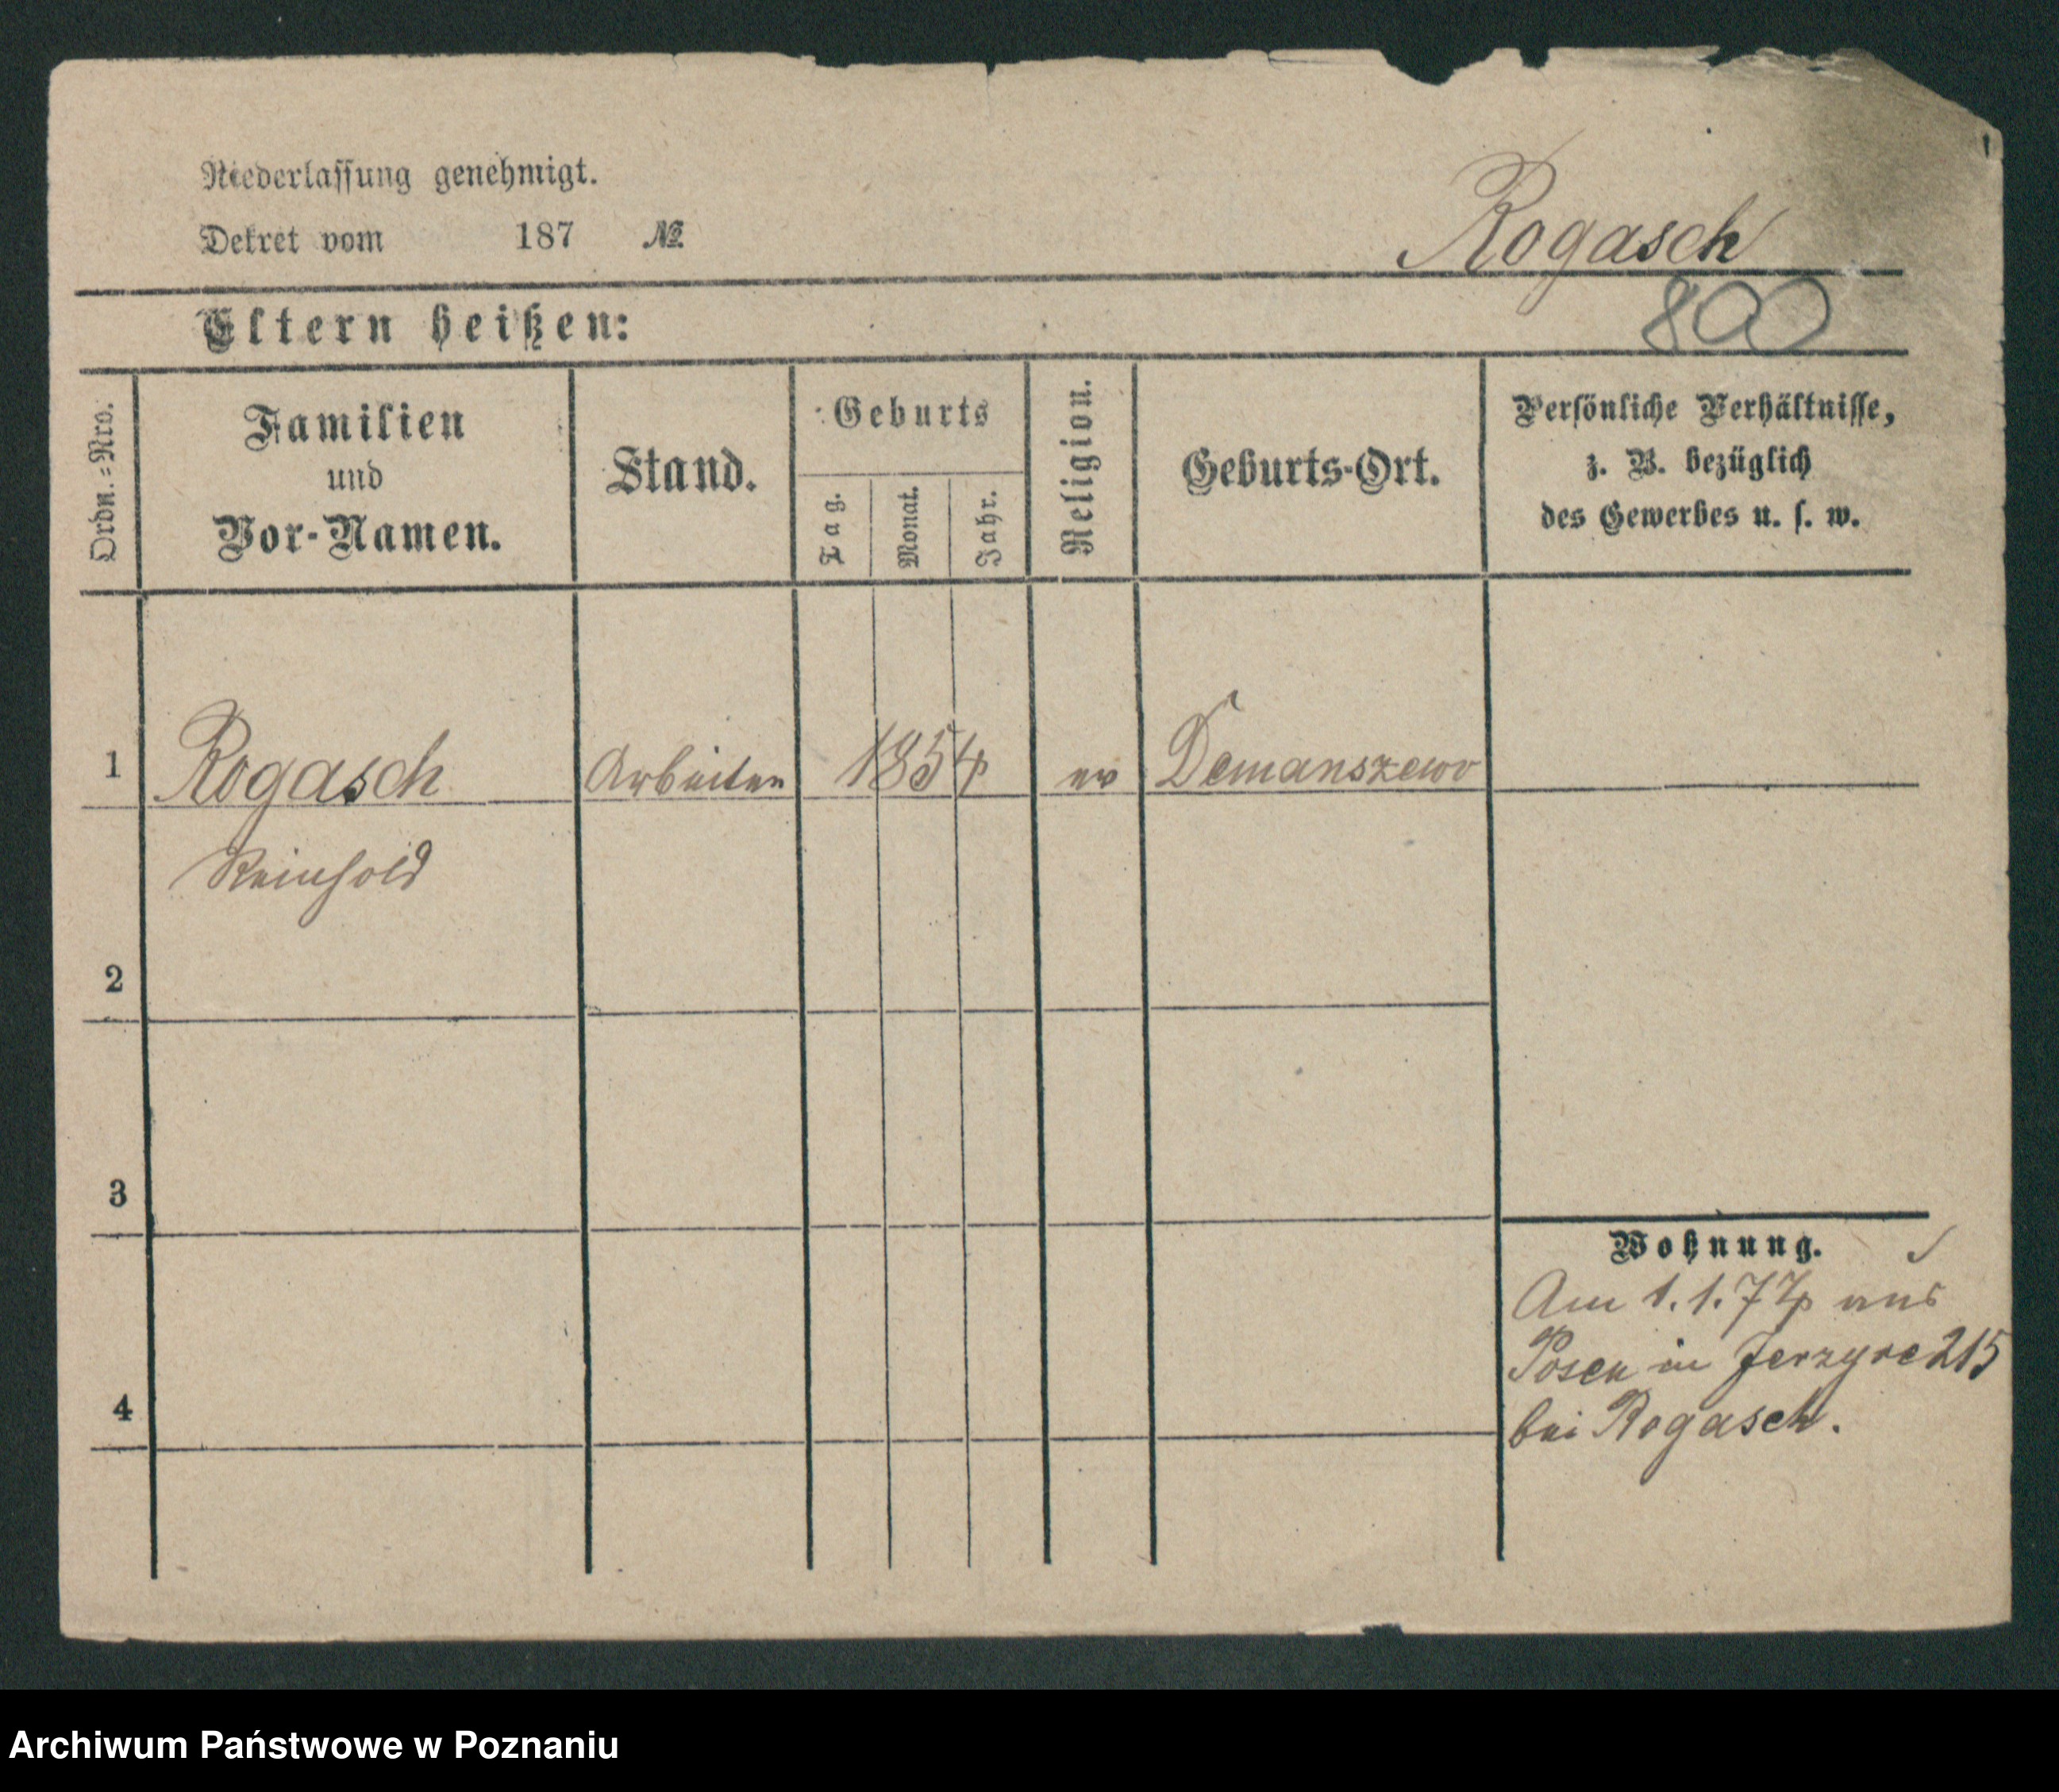 Niederlassung genehmigt.
Dekret vom 187 №
Rogasch
800
Eltern heißen:
Ordn.=Nro.
Familien
und
Vor-Namen.
Stand.
Geburts
Tag.
Monat.
Jahr.
Religion.
Geburts-Ort.
Persönliche Verhältnisse,
z. B. bezüglich
des Gewerbes u. s. w.
1 Rogasch Arbeiter 1854 ev Demanszewo
Reinhold
2
3
4
Wohnung.
Am 1.1.74 aus
Posen in 215
bei Rogasch.
Archiwum Państwowe w Poznaniu